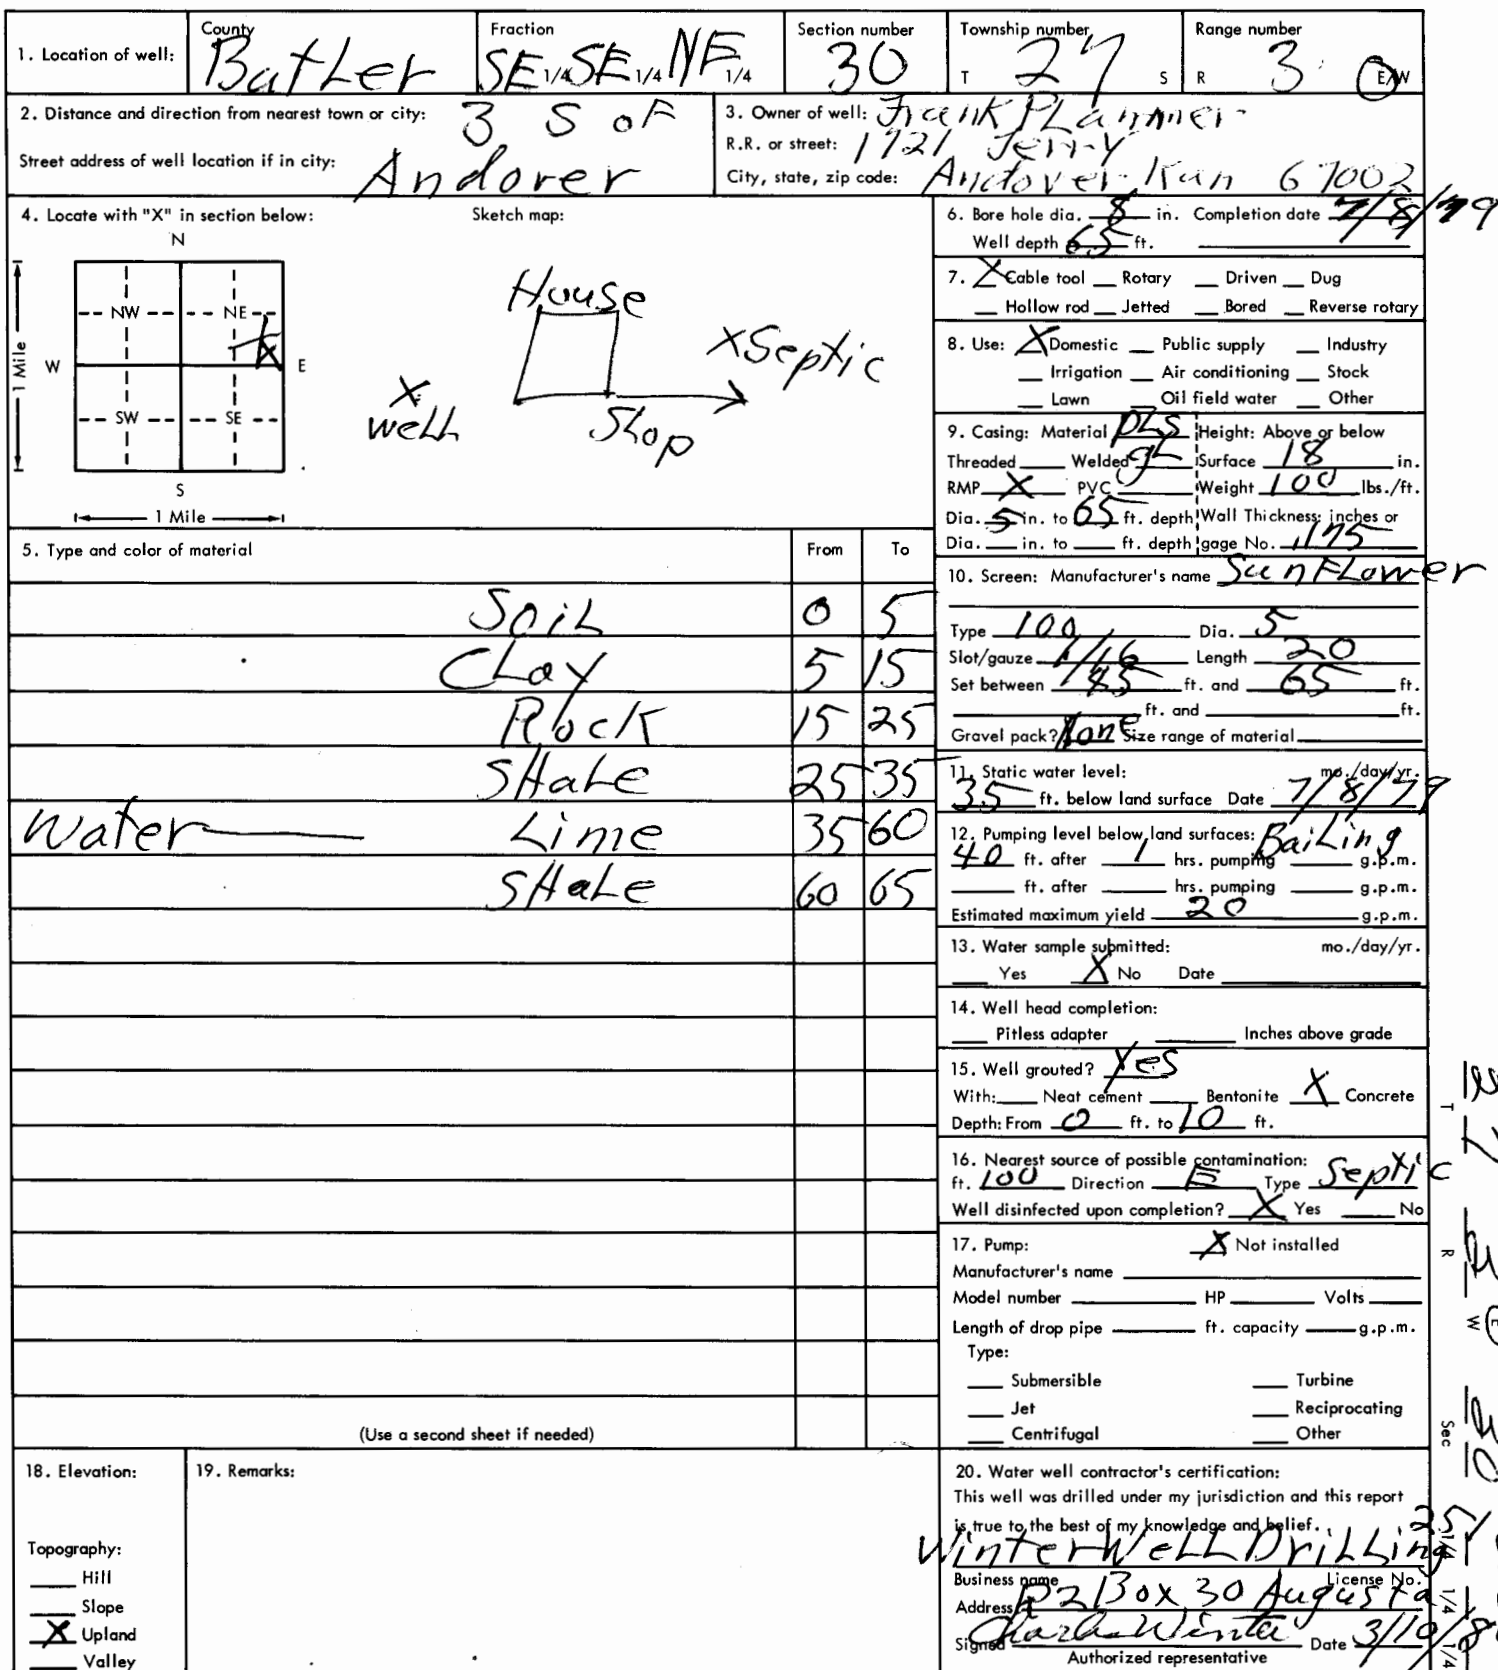 1. Location of well: County Butler Fraction SE 1/4 SE 1/4 NE 1/4 Section number 30 Township number T 27 S Range number R 3 E/W
2. Distance and direction from nearest town or city: 3 S of
Street address of well location if in city: Andover
3. Owner of well: Frank
R.R. or street: 1721 Jerry
City, state, zip code: Andover Kan 67002
4. Locate with "X" in section below:
N
NW NE
W E
1 Mile
SW SE
S
1 Mile
Sketch map:
House
X Septic
X
Well
Shop
5. Type and color of material From To
Soil 0 5
Clay 5 15
Rock 15 25
SHaLe 25 35
Water Lime 35 60
SHaLe 60 65
(Use a second sheet if needed)
6. Bore hole dia. 8 in. Completion date 7/8/79
Well depth 65 ft.
7. X Cable tool Rotary Driven Dug
Hollow rod Jetted Bored Reverse rotary
8. Use: X Domestic Public supply Industry
Irrigation Air conditioning Stock
Lawn Oil field water Other
9. Casing: Material PLS Height: Above or below
Threaded Welded gL Surface 18 in.
RMP X PVC Weight 100 lbs./ft.
Dia. 5 in. to 65 ft. depth Wall Thickness: inches or
Dia. in. to ft. depth gage No. .175
10. Screen: Manufacturer's name SunFLower
Type 100 Dia. 5
Slot/gauze 1/16 Length 20
Set between 45 ft. and 65 ft.
ft. and ft.
Gravel pack? None Size range of material
11. Static water level: mo./day/yr.
35 ft. below land surface Date 7/8/79
12. Pumping level below land surfaces: BaiLing
40 ft. after 1 hrs. pumping g.p.m.
ft. after hrs. pumping g.p.m.
Estimated maximum yield 20 g.p.m.
13. Water sample submitted: mo./day/yr.
Yes X No Date
14. Well head completion:
Pitless adapter Inches above grade
15. Well grouted? Yes
With: Neat cement Bentonite X Concrete
Depth: From 0 ft. to 10 ft.
16. Nearest source of possible contamination:
ft. 100 Direction E Type Septic
Well disinfected upon completion? X Yes No
17. Pump: X Not installed
Manufacturer's name
Model number HP Volts
Length of drop pipe ft. capacity g.p.m.
Type:
Submersible Turbine
Jet Reciprocating
Centrifugal Other
18. Elevation:
Topography:
Hill
Slope
X Upland
Valley
19. Remarks:
20. Water well contractor's certification:
This well was drilled under my jurisdiction and this report
is true to the best of my knowledge and belief.
Winter WeLL DriLLing
Business name License No.
Address R2 Box 30 Augusta
Signed Winter Date 3/10/8
Authorized representative
T
R
E W
Sec
1/4 1/4 1/4